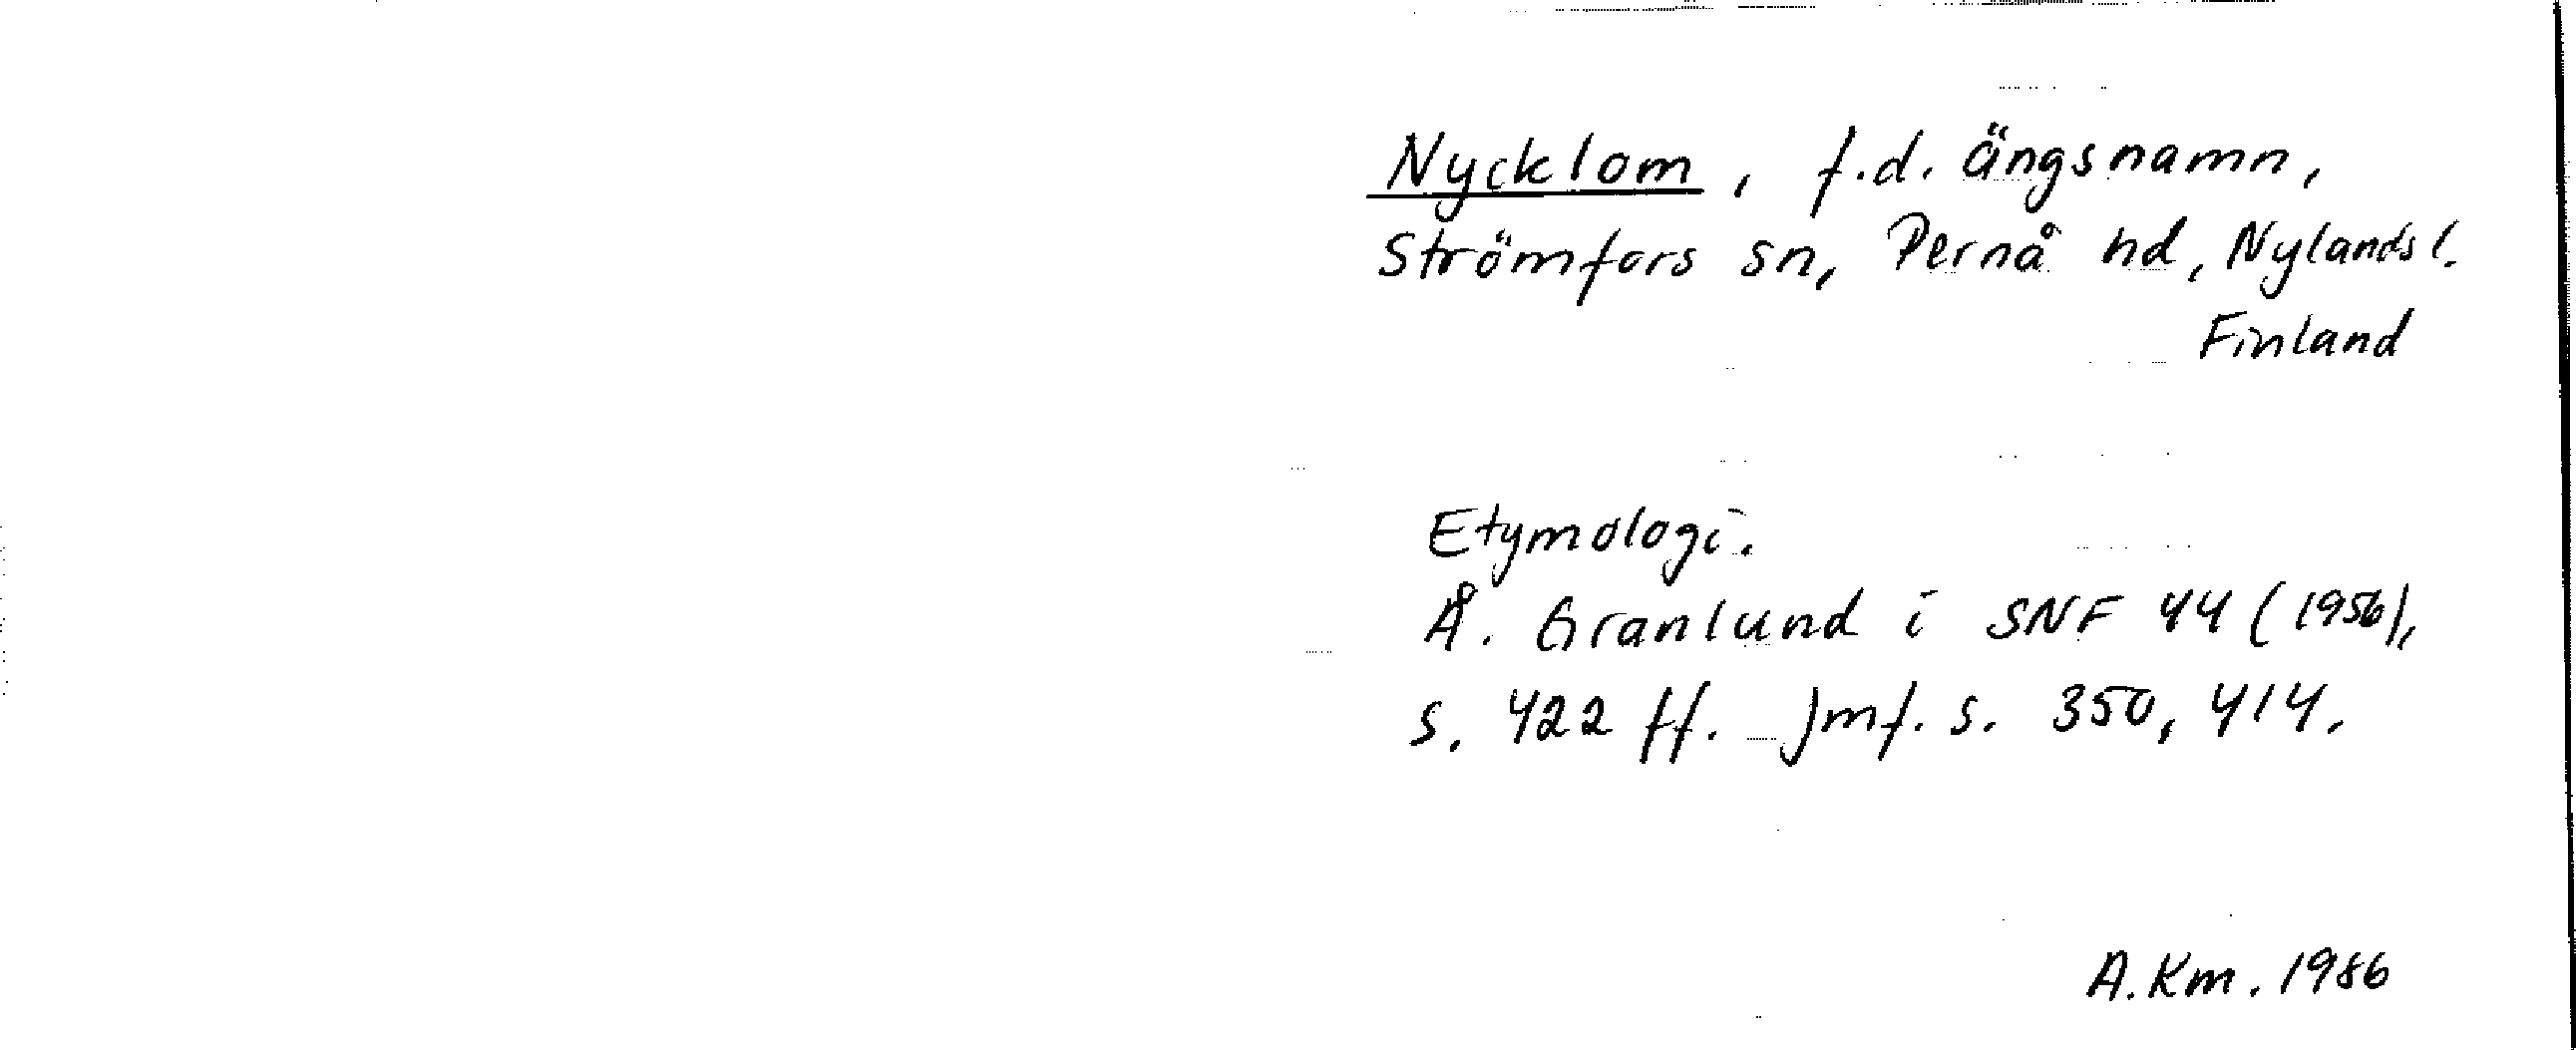 Nycklom, f.d. ängsnamn,
Strömfors sn, Pernå hd, Nylands l.
Finland
Etymologi.
Å. Granlund i SNF 44 (1956),
s. 422 ff. Jmf. s. 350, 414.
A.Km. 1986